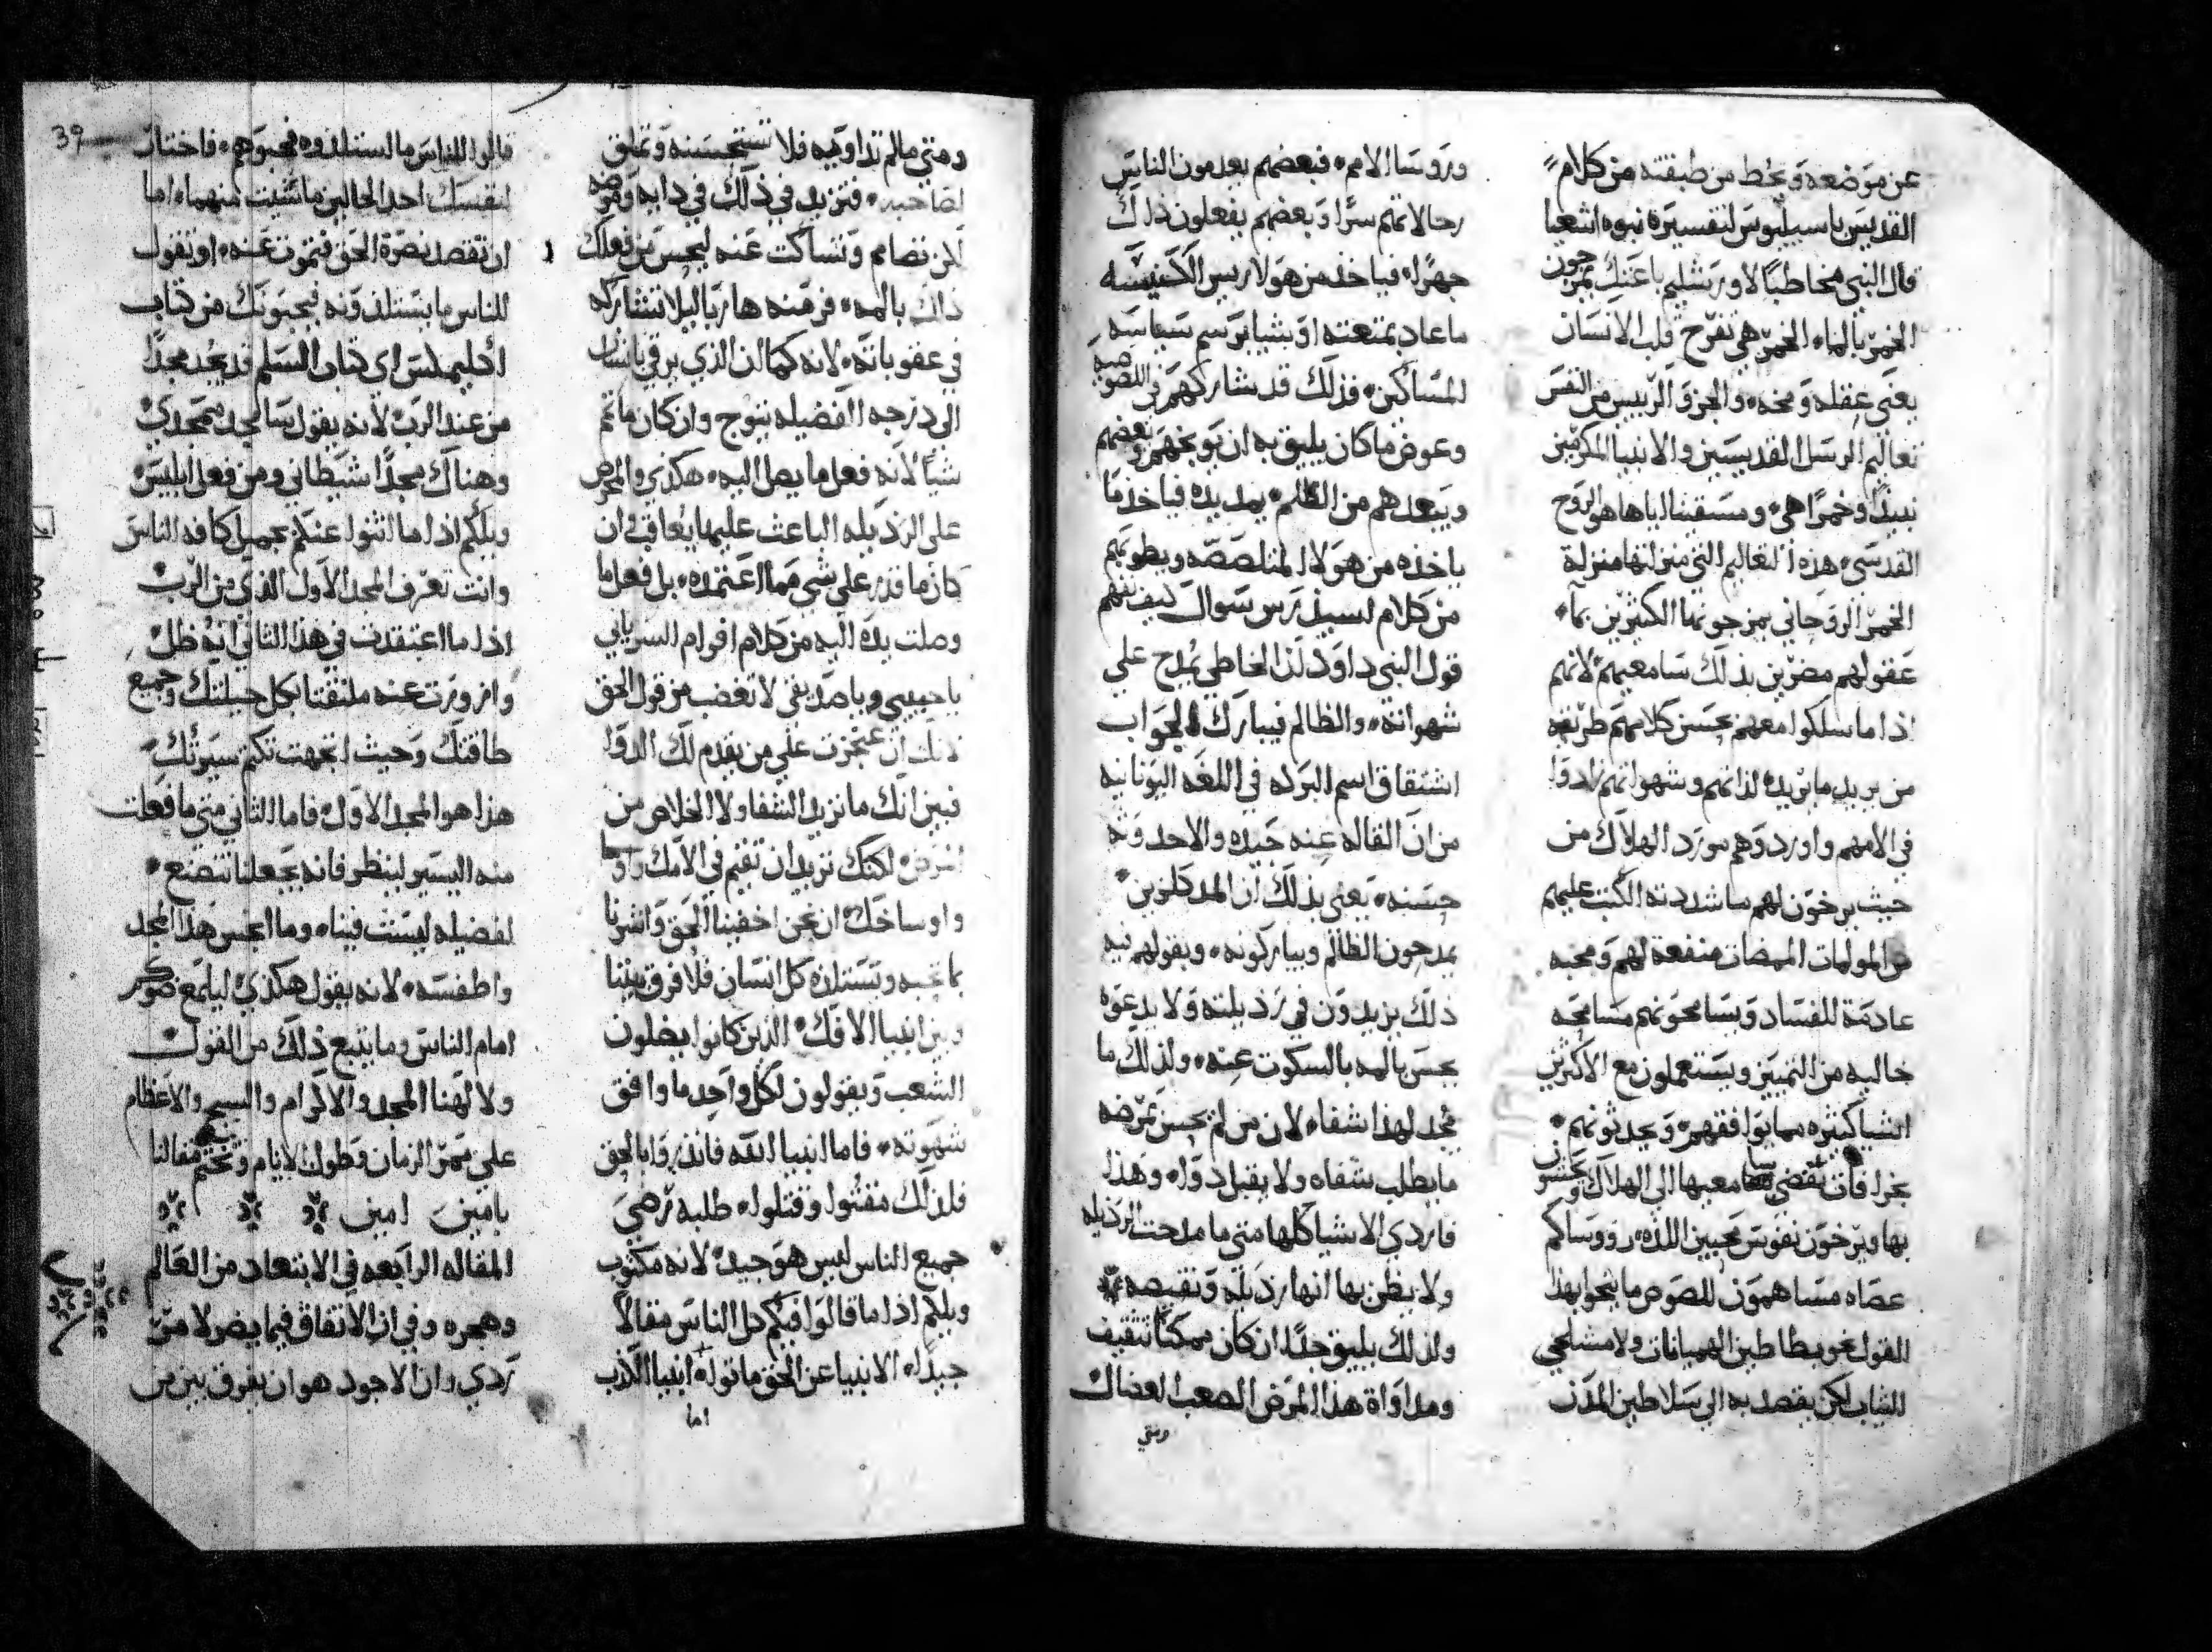 عن موضعه ويحط من طبقته من كلام
القديس باسيليوس لتفسيره نبوه اشعيا
قال النبي مخاطبا لاورشليم باعتك يمزجون
الخمر بالماء الخمر هي تفرح قلب الانسان
يعني عقله ومخه والجزو الرييس من النفس
تعاليم الرسل القديسين والانبيا المكرمين
نبيذا وخمرا هي ومسقينا اياها هو الروح
القدسي هذه التعاليم التي منزلتها منزلة
الخمر الروحاني يمزجونها الكثيرين بما
عقولهم مضرين بذلك سامعيهم لانهم
اذا ما سلكوا معهم بحسن كلامهم طريقه
من يريد ما تريده لذاتهم وشهواتهم زادوا
في الامهم واوردوهم مورد الهلاك من
حيث يرخون لهم ما شددته الكتب عليهم
من المولمات الممضات منفعة لهم ومحبه
عادمة للفساد ويسامحونهم مسامحه
خاليه من التمييز ويستعملون مع الاكثرين
اشيا كثيره مما يوافقهم ويحدثونهم
بخرافات تفضي بسامعيها الى الهلاك ويغشون
بها ويرخون نفوس محبين اللذه رووساكم
عصاه مساهمون للصوص ما ينحوا بهذا
القول نحو بطاطين الهميانات ولا مشلحي
الثياب لكن يقصد به الى سلاطين المدن
وروسا الامم فبعضهم يعدمون الناس
رحالاتهم سرا وبعضهم يفعلون ذلك
جهرا فياخذ من هولا رييس الكنيسه
ما عاد بمتعته او بشيا برسم سياسه
المساكين فذلك قد شاركهم في اللصوصيه
وعوض ما كان يليق به ان يوبخهم وبعضهم
ويبعدهم من الظلم يمد يده فياخذ ما
ياخذه من هولا المتلصصه ويطوبهم
من كلام لسبيلدرس سوال كيف نفهم
قول النبي داود لذا الخاطي يمدح علي
شهواته والظالم فيبارك الجواب
اشتقاق اسم البركه في اللغه اليونانيه
من ان القاله عنه جيده والاحدوثه
حسنه يعني بذلك ان المدكلزين
يمدحون الظالم ويباركونه وبقولهم فيه
ذلك يزيدون في رذيلته ولا يدعوه
يحس بالمه بالسكوت عنه ولذلك ما
يجد لهذا شفا لان من لم يحس بمرضه
ما يطلب شفاه ولا يقبل دواه وهذا
فاردي الاشيا كلها متى ما مدحت الرذيله
ولا يظن بها انها رذيله ونقيصه
ولذلك يليق جدا ان كان ممكنا تثقيف
ومداواة هذا المرض الصعب العضال
ومتي
ومتي ما لم تداويه فلا تستحسنه وتملق
لصاحبه فتزيد في ذلك في دايه ومرضه
لكن تصامم وتساكت عنه ليحس من فعلك
ذلك بالمه فر منه هاربا ليلا تشاركه
في عقوباته لانه كما ان الذي يرقي بانسان
الى درجه الفضيله يتوج وان كان ما تم
شيا لانه فعل ما يصل اليه هكذي والمحرض
على الرذيله الباعث عليها يعاقب وان
كان ما قدر على شي مما اعتمده بل فعل ما
وصلت يده اليه من كلام افرام السرياني
يا حبيبي ويا صديقي لا تغضب من قول الحق
لانك ان عجزت علي من يقدم لك الدوا
فبين انك ما تريد الشفا ولا الخلاص من
المرض لكنك تريد ان تقيم في الامك واوجا
واوساخك ان نحن اخفينا الحق واشرنا
بما تحبه وتستلذه كل انسان فلا فرق بيننا
وبين انبيا الافك الذين كانوا يضلون
الشعب ويقولون لكل واحد ما وافق
شهوته فاما انبيا الله فانذروا بالحق
فلذلك مقتوا وقتلوا طلبه ترضي
جميع الناس ليس هو جيد لانه مكتوب
ويلكم اذا ما قالوا فيكم كل الناس مقالا
جيدا الانبيا عن الحق ماتوا انبيا الكذب
اما
39
قالوا للناس ما استلذوه فحبوهم فاختار
لنفسك احد الحالين ما شيت منهما اما
ان تقصد نصرة الحق فتموت عنه او تقول
للناس ما يستلذونه فيحبونك من كتاب
اكليمكس اي كتاب السلم قد يجد مجدا
من عند الرب لانه يقول سامجد ممجدي
وهناك مجدا شيطاني ومن فعل ابليس
ويلكم اذا ما اثنوا عنكم بجميل كافه الناس
وانت تعرف المجد الاول الذي من الرب
اذا ما اعتقدت في هذا الثاني انه ظل
وازورت عنه ملتفتا بكل حيلتك وجميع
طاقتك وحيث اتجهت تكتم سيرتك
هذا هو المجد الاول فاما الثاني متي ما فعلت
منه اليسير لينظر فانه يجعلنا نتصنع
لفضيله ليست فينا وما احس هذا المجد
واطفسه لانه يقول هكذي ليلمع ضوكم
امام الناس وما يتبع ذلك من القول
ولالهنا المجد والاكرام والتسبيح والاعظام
على ممر الزمان وطول الايام ونختم مقالنا
بامين امين
المقاله الرابعه في الابتعاد من العالم
وهجره وفي ان الاتفاق فيما يضر لا من
ردي وان الاجود هو ان يفوق بين من